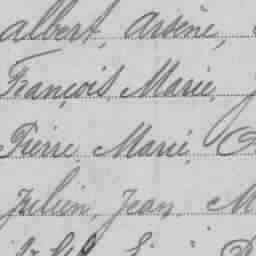 Albert, Arsène,
François, Marie,
Pierre Marie
Julien, Jean